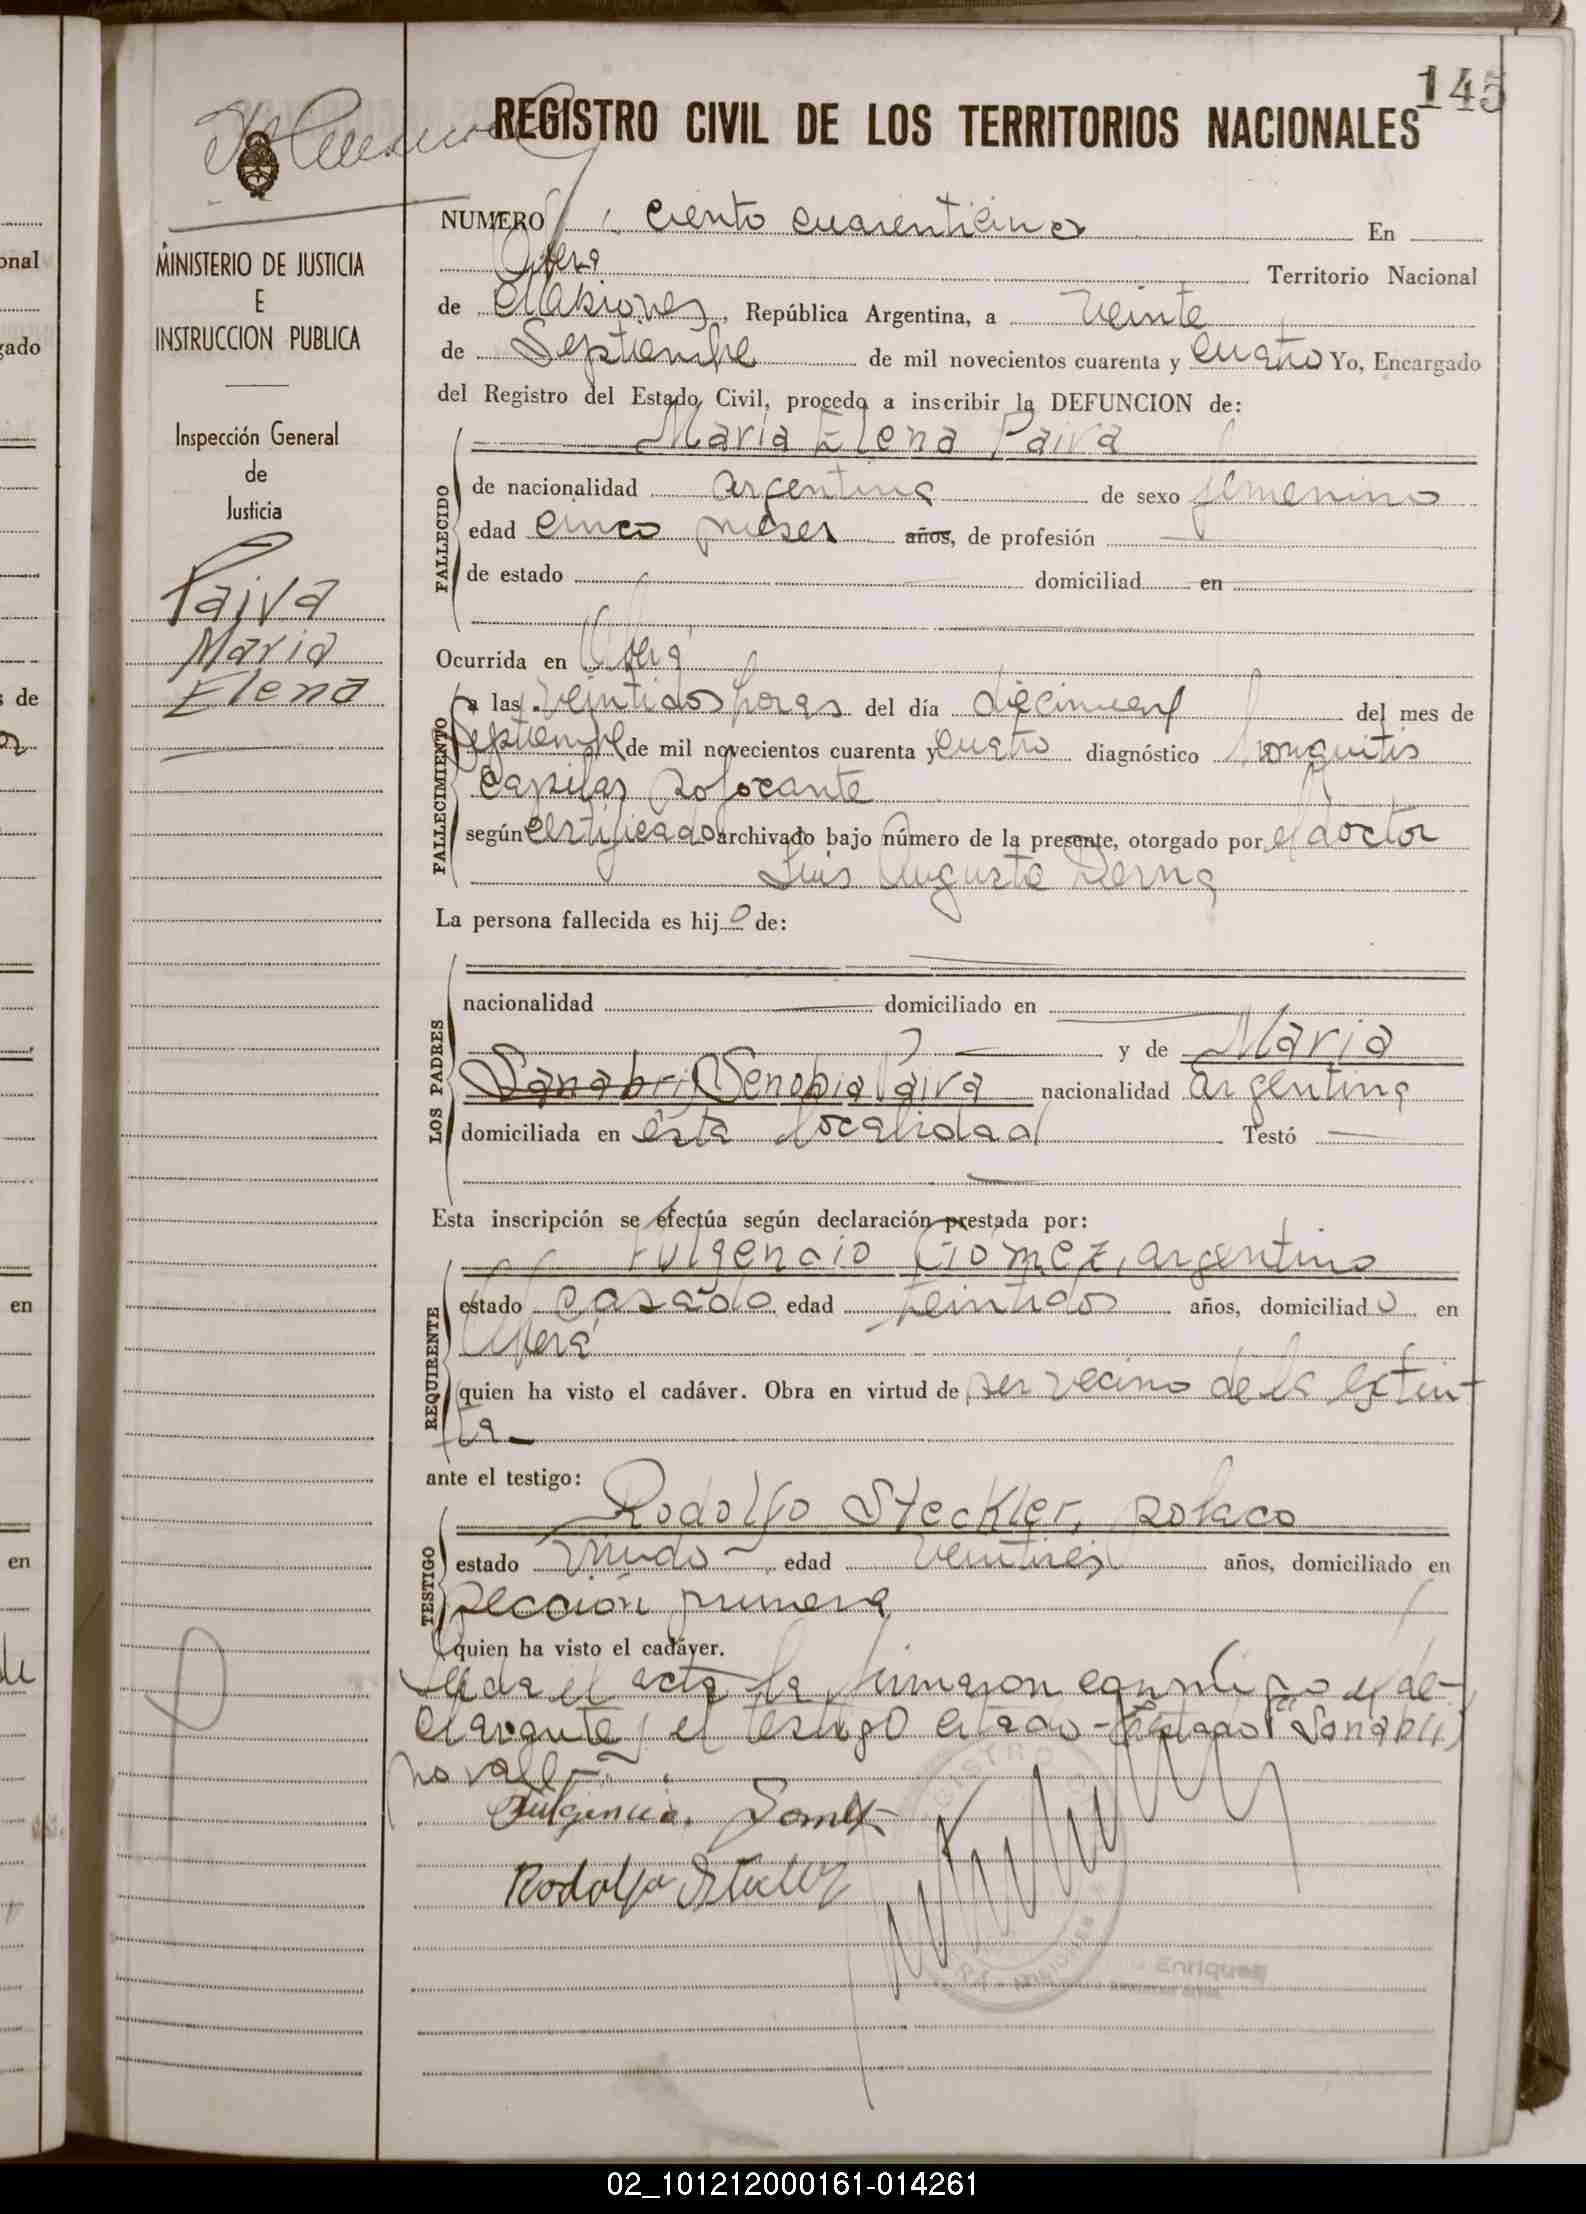 145
REGISTRO CIVIL DE LOS TERRITORIOS NACIONALES
NUMERO ciento cuarenticinco En
Oberá Territorio Nacional
de Misiones, República Argentina, a veinte
de Septiembre de mil novecientos cuarenta y cuatro Yo, Encargado
del Registro del Estado Civil, procedo a inscribir la DEFUNCION de:
Maria Elena Paiva
de nacionalidad argentina de sexo femenino
edad cinco meses años, de profesión
de estado domiciliad en
FALLECIDO
Ocurrida en Oberá
a las veintidos horas del día diecinueve del mes de
Septiembre de mil novecientos cuarenta y cuatro diagnóstico bronquitis
capilar sofocante
según certificado archivado bajo número de la presente, otorgado por el doctor
Luis Augusto Derna
FALLECIMIENTO
La persona fallecida es hijo de:
nacionalidad domiciliado en
y de Maria
Sanabri Senobia Paiva nacionalidad argentina
domiciliada en esta localidad Testó
LOS PADRES
Esta inscripción se efectúa según declaración prestada por:
Fulgencio Gómez, argentino
estado casado edad veintidos años, domiciliado en
Oberá
quien ha visto el cadáver. Obra en virtud de ser vecino de la extin-
ta
REQUIRENTE
ante el testigo:
Rodolfo Steckler, polaco
estado viudo edad veintitres años, domiciliado en
sección primera
TESTIGO
quien ha visto el cadáver.
Leida el acta la firmaron conmigo el de-
clarante y el testigo citado - Testado "Sanabri"
no vale
Fulgencio Gomez
Rodolfo Steckler
Enriquez
MINISTERIO DE JUSTICIA
E
INSTRUCCION PUBLICA
Inspección General
de
Justicia
Paiva
Maria
Elena
02_101212000161-014261